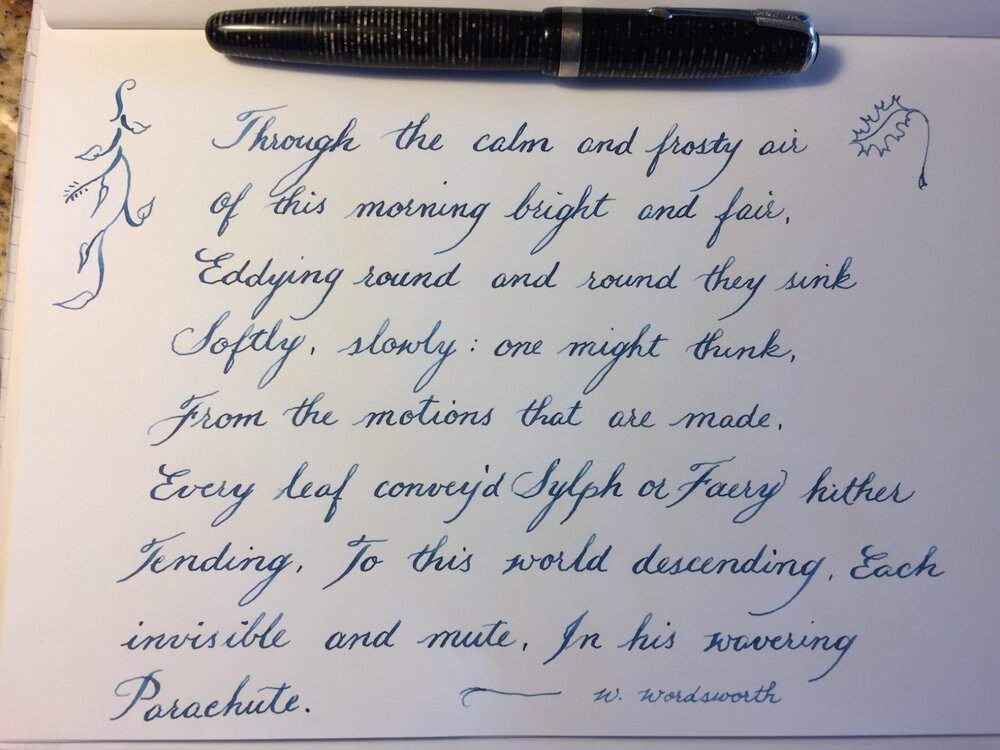 Through the calm and frosty air
Of this morning bright and fair,
Eddying round and round they sink
Softly, slowly: one might think,
From the motions that are made,
Every leaf convey'd Sylph or Faery hither
Tending, To this world descending, Each
invisible and mute, In his wavering
Parachute.
W. Wordsworth